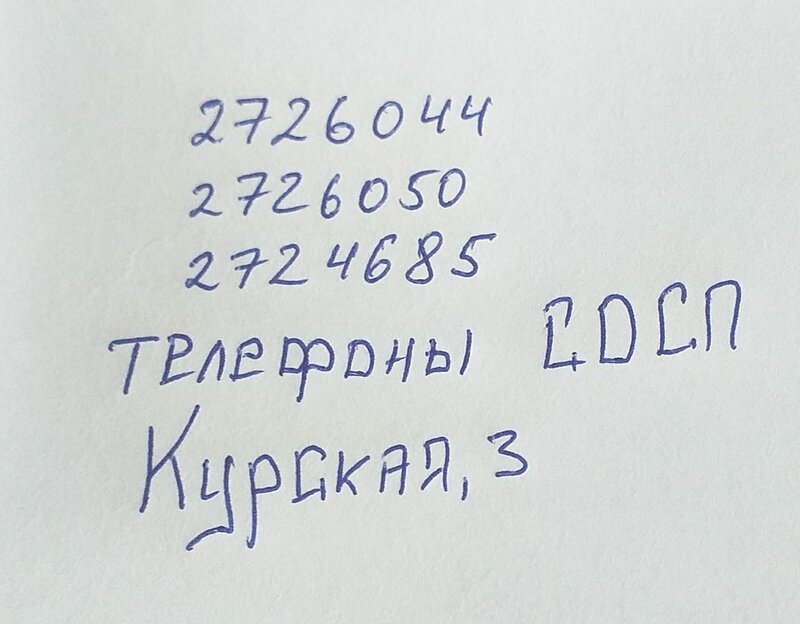 2726044
2726050
2724685
телефоны СОСП
Курская, 3